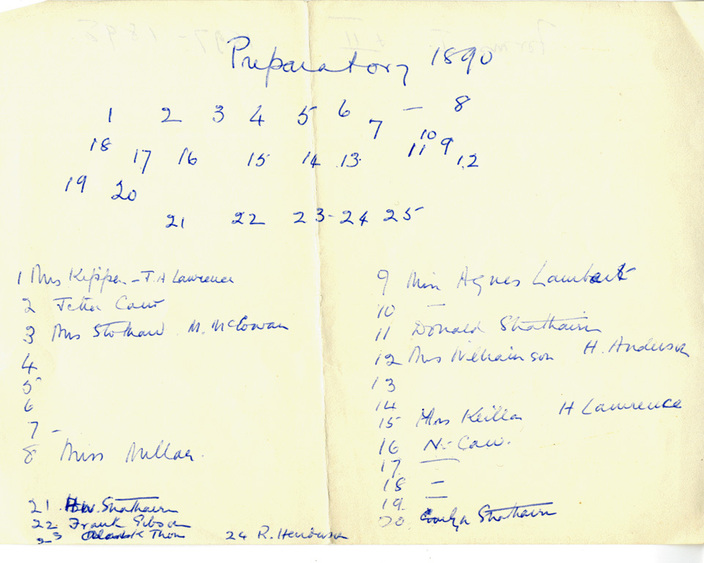 Preparatory 1890
1 2 3 4 5 6 7 — 8
18 17 16 15 14 13 11 10 9 12
19 20
21 22 23 24 25
1 Mrs Kippen - J.H Lawrence
2 Jetta Caw
3 Mrs Stothard M. McCowan
4
5
6
7 -
8 Miss Millar.
9 Miss Agnes Lambert
10 —
11 Donald Strathairn
12 Mrs Williamson H. Anderson
13
14
15 Mrs Keiller H Lawrence
16 N. Caw.
17 —
18 —
19
20 Strathairn
21 Strathairn
22 Frank Gibson
23 Thom 24 R. Henderson